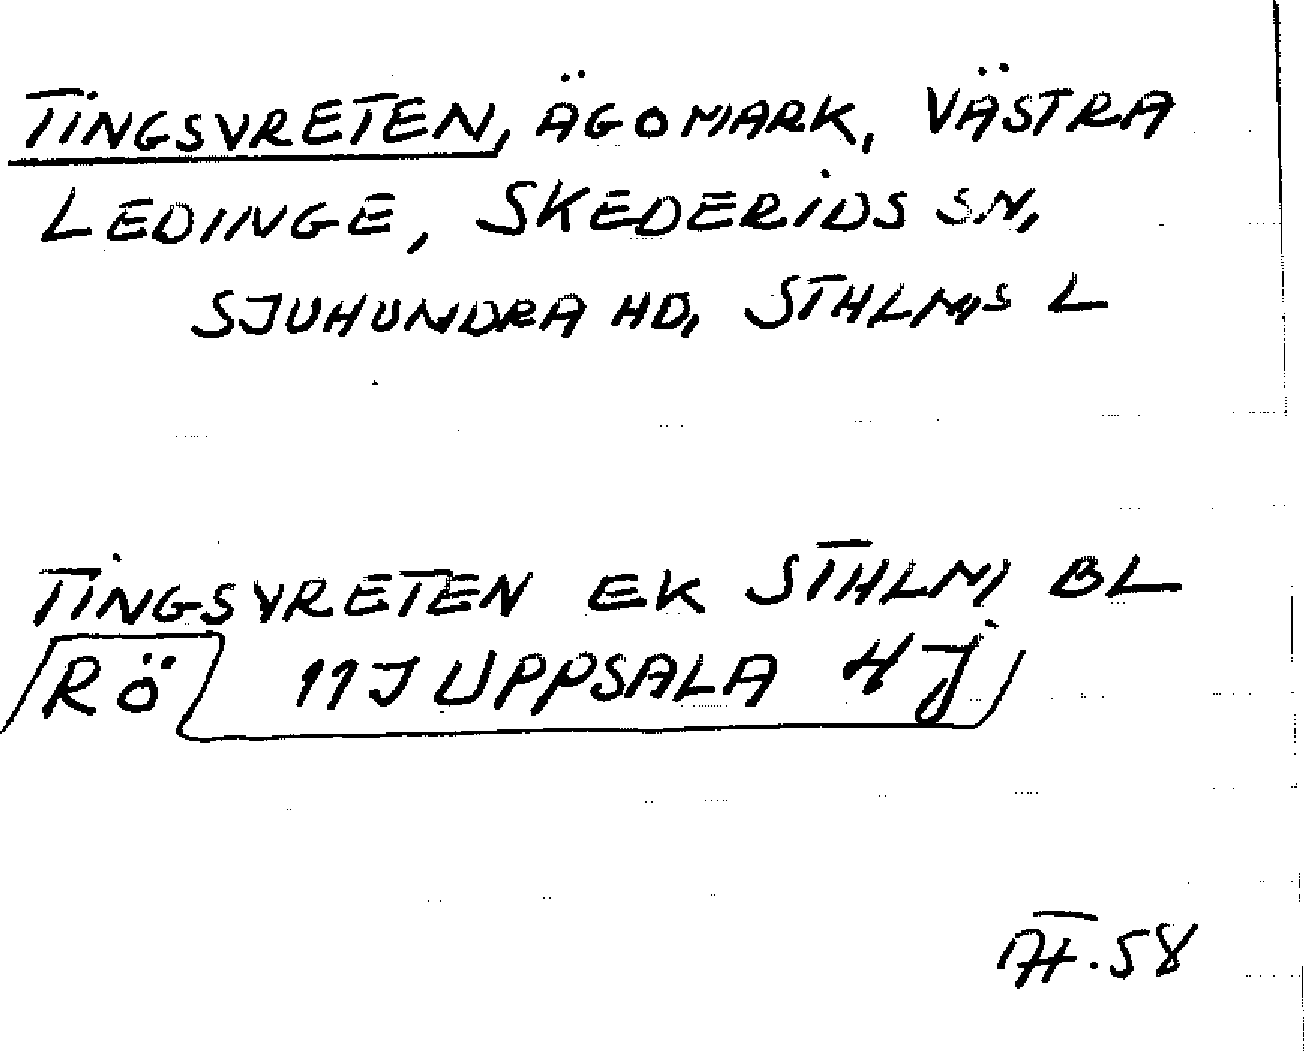 TINGSVRETEN, ÄGOMARK, VÄSTRA
LEDINGE, SKEDERIDS SN,
SJUHUNDRA HD, STHLMS L
TINGSVRETEN EK STHLM BL
RÖ 11J UPPSALA 4J